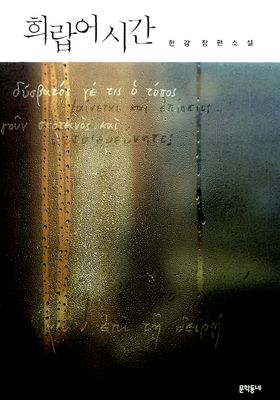 희랍어 시간
한강 장편소설
δύσβατός γέ τις ὁ τόπος
φαίνεται καὶ ἐπίσκιος
γοῦν σκοτεινὸς καὶ
ἐπὶ τῇ δειρῇ
문학동네